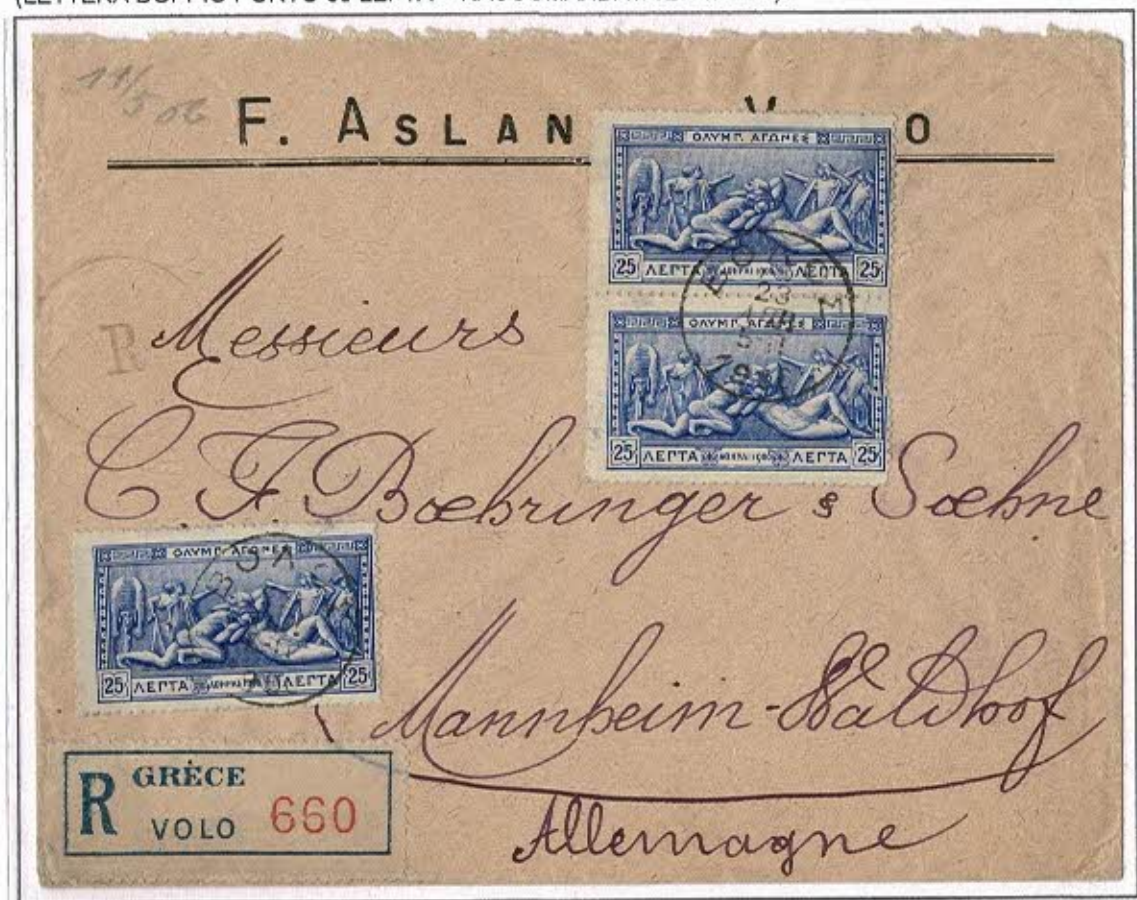 11/5 06
F. ASLAN V O
ΟΛΥΜΠ. ΑΓΩΝΕΣ
25 ΛΕΠΤΑ ΑΘΗΝΑΙ 1906 ΛΕΠΤΑ 25
23
ΑΠΡ
ΟΛΥΜΠ. ΑΓΩΝΕΣ
25 ΛΕΠΤΑ ΑΘΗΝΑΙ 1906 ΛΕΠΤΑ 25
R
Messieurs
C F Boehringer & Soehne
ΟΛΥΜΠ. ΑΓΩΝΕΣ
25 ΛΕΠΤΑ ΛΕΠΤΑ 25
Mannheim-Waldhof
Allemagne
R GRÈCE
VOLO 660